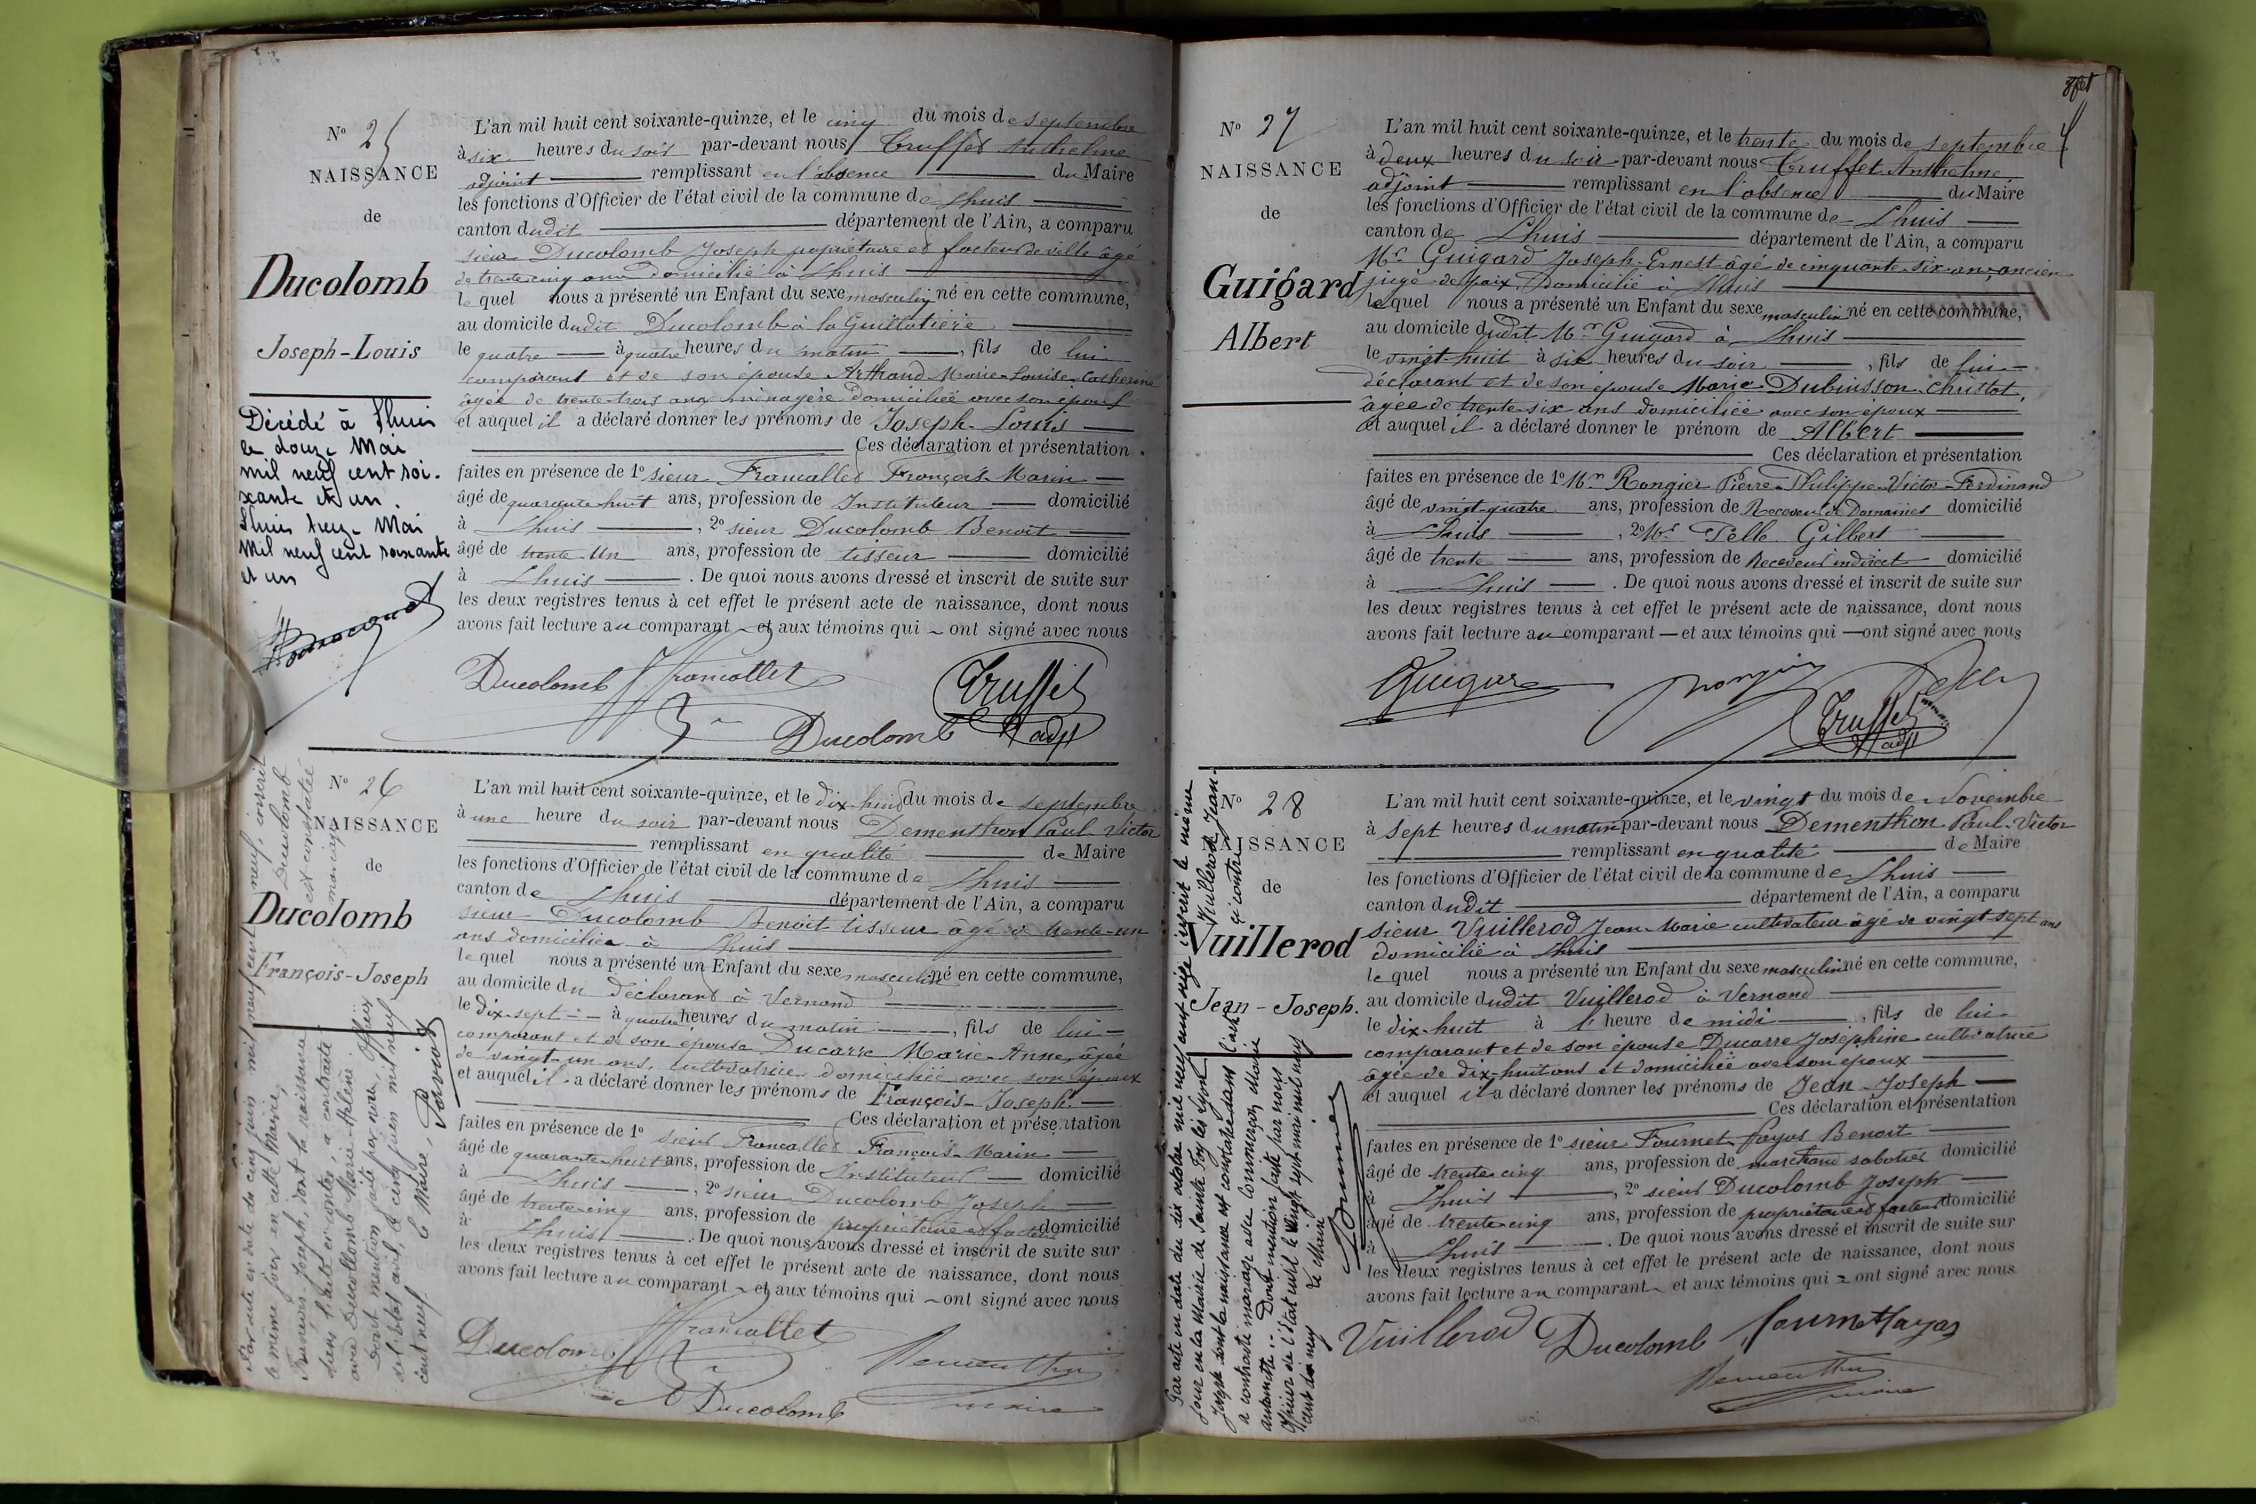 N° 25
NAISSANCE
de
Ducolomb
Joseph-Louis
Décédé à Lhuis
le douze Mai
mil neuf cent soi-
xante et un.
Lhuis treize Mai
Mil neuf cent soixante
et un
L'an mil huit cent soixante-quinze, et le cinq du mois de septembre
à six heures du soir par-devant nous Truffet Anthelme
adjoint remplissant en l'absence du Maire
les fonctions d'Officier de l'état civil de la commune de Lhuis
canton dudit département de l'Ain, a comparu
sieur Ducolomb Joseph propriétaire et facteur de ville âgé
de trente cinq ans domicilié à Lhuis
lequel nous a présenté un Enfant du sexe masculin né en cette commune,
au domicile dudit Ducolomb à la Guillotière
le quatre à quatre heures du matin, fils de lui
comparant et de son épouse Arthaud Marie-Louise-Catherine
âgée de trente-trois ans ménagère domiciliée avec son époux
et auquel il a déclaré donner les prénoms de Joseph-Louis
Ces déclaration et présentation
faites en présence de 1° sieur Francallet François-Marin
âgé de quarante-huit ans, profession de Instituteur domicilié
à Lhuis, 2° sieur Ducolomb Benoit
âgé de trente-un ans, profession de tisseur domicilié
à Lhuis. De quoi nous avons dressé et inscrit de suite sur
les deux registres tenus à cet effet le présent acte de naissance, dont nous
avons fait lecture au comparant et aux témoins qui ont signé avec nous
Ducolomb Francallet Truffet
Ducolomb adjt
N° 26
NAISSANCE
de
Ducolomb
François-Joseph
Par acte en date du cinq juin mil neuf cent neuf, inscrit
le même jour en cette Mairie, Ducolomb
François-Joseph, dont la naissance est constatée
dans l'acte ci-contre, a contracté mariage
avec Ducollomb Marie
Dont mention faite par nous, Officier
de l'état civil, le cinq juin mil neuf
cent neuf. Le Maire,
L'an mil huit cent soixante-quinze, et le dix-huit du mois de septembre
à une heure du soir par-devant nous Dementhon Paul Victor
remplissant en qualité de Maire
les fonctions d'Officier de l'état civil de la commune de Lhuis
canton de Lhuis département de l'Ain, a comparu
sieur Ducolomb Benoit tisseur âgé de trente-un
ans domicilié à Lhuis
lequel nous a présenté un Enfant du sexe masculin né en cette commune,
au domicile du déclarant à Vernand
le dix-sept à quatre heures du matin, fils de lui
comparant et de son épouse Ducarre Marie-Anne, âgée
de vingt-un ans, cultivatrice domiciliée avec son époux
et auquel il a déclaré donner les prénoms de François-Joseph.
Ces déclaration et présentation
faites en présence de 1° sieur Francallet François-Marin
âgé de quarante-huit ans, profession de Instituteur domicilié
à Lhuis, 2° sieur Ducolomb Joseph
âgé de trente-cinq ans, profession de propriétaire et facteur domicilié
à Lhuis. De quoi nous avons dressé et inscrit de suite sur
les deux registres tenus à cet effet le présent acte de naissance, dont nous
avons fait lecture au comparant et aux témoins qui ont signé avec nous
Ducolomb Francallet Dementhon
Ducolomb maire
N° 27
NAISSANCE
de
Guigard
Albert
L'an mil huit cent soixante-quinze, et le trente du mois de septembre
à deux heures du soir par-devant nous Truffet Anthelme
adjoint remplissant en l'absence du Maire
les fonctions d'Officier de l'état civil de la commune de Lhuis
canton de Lhuis département de l'Ain, a comparu
Mr Guigard Joseph-Ernest âgé de cinquante-six ans, ancien
juge de paix, domicilié à Lhuis
lequel nous a présenté un Enfant du sexe masculin né en cette commune,
au domicile dudit Mr Guigard à Lhuis
le vingt-huit à six heures du soir, fils de lui
déclarant et de son épouse Marie Dubuisson-Christot,
âgée de trente-six ans domiciliée avec son époux
et auquel il a déclaré donner le prénom de Albert
Ces déclaration et présentation
faites en présence de 1° Mr Rongier Pierre-Philippe-Victor-Ferdinand
âgé de vingt-quatre ans, profession de Receveur de Domaines domicilié
à Lhuis, 2° Mr Pelle Gilbert
âgé de trente ans, profession de Receveur indirect domicilié
à Lhuis. De quoi nous avons dressé et inscrit de suite sur
les deux registres tenus à cet effet le présent acte de naissance, dont nous
avons fait lecture au comparant et aux témoins qui ont signé avec nous
Guigard Rongier Pelle
Truffet
adjt
N° 28
NAISSANCE
de
Vuillerod
Jean-Joseph.
Par acte en date du dix octobre mil neuf cent seize inscrit le même
jour en la Mairie de Sainte Foy les Lyon Vuillerod Jean-
Joseph dont la naissance est constatée dans l'acte ci-contre
a contracté mariage avec Commerçon Marie
Antoinette.. Dont mention faite par nous
Officier de l'état civil le vingt sept mai mil neuf
cent dix neuf Le Maire
L'an mil huit cent soixante-quinze, et le vingt du mois de Novembre
à sept heures du matin par-devant nous Dementhon Paul-Victor
remplissant en qualité de Maire
les fonctions d'Officier de l'état civil de la commune de Lhuis
canton dudit département de l'Ain, a comparu
sieur Vuillerod Jean-Marie cultivateur âgé de vingt-sept ans
domicilié à Lhuis
lequel nous a présenté un Enfant du sexe masculin né en cette commune,
au domicile dudit Vuillerod à Vernand
le dix-huit à l'heure de midi, fils de lui
comparant et de son épouse Ducarre Joséphine cultivatrice
âgée de dix-huit ans et domiciliée avec son époux
et auquel il a déclaré donner les prénoms de Jean-Joseph
Ces déclaration et présentation
faites en présence de 1° sieur Fournet-Fayos Benoit
âgé de trente-cinq ans, profession de marchand sabotier domicilié
à Lhuis, 2° sieur Ducolomb Joseph
âgé de trente-cinq ans, profession de propriétaire et facteur domicilié
à Lhuis. De quoi nous avons dressé et inscrit de suite sur
les deux registres tenus à cet effet le présent acte de naissance, dont nous
avons fait lecture au comparant et aux témoins qui ont signé avec nous
Vuillerod Ducolomb Fournet Fayos
Dementhon
maire